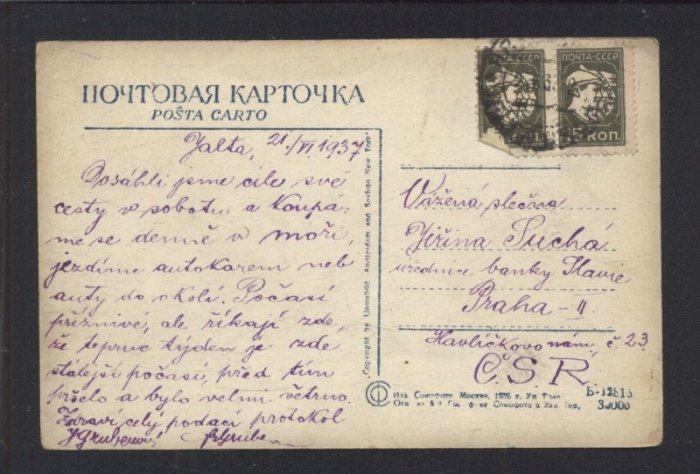 ПОЧТОВАЯ КАРТОЧКА
POŜTA CARTO
ПОЧТА·СССР
ПОЧТА·СССР
15 КОП.
Jalta, 21/VI 1937
Dosáhli jsme cíle své
cesty v sobotu a koupá-
me se denně v moři,
jezdíme autokarem neb
auty do okolí. Počasí
příznivé, ale říkají zde,
že teprve týden je zde
stálejší počasí, před tím
pršelo a bylo velmi větrno.
Zdraví celý podací protokol
Vážená slečna
Jiřina Suchá
úřednice banky Slavie
Praha - II
Havlíčkovo nám. č. 23
Č.S.R
Copyright by
Amsterdam and
New York
Изд. Союзфото Москва, 1936 г.
Б-12815